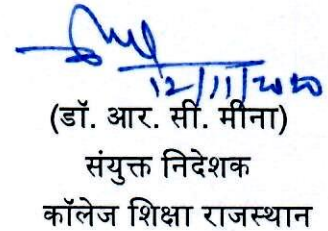 12/11/2020
(डॉ. आर. सी. मीना)
संयुक्त निदेशक
कॉलेज शिक्षा राजस्थान